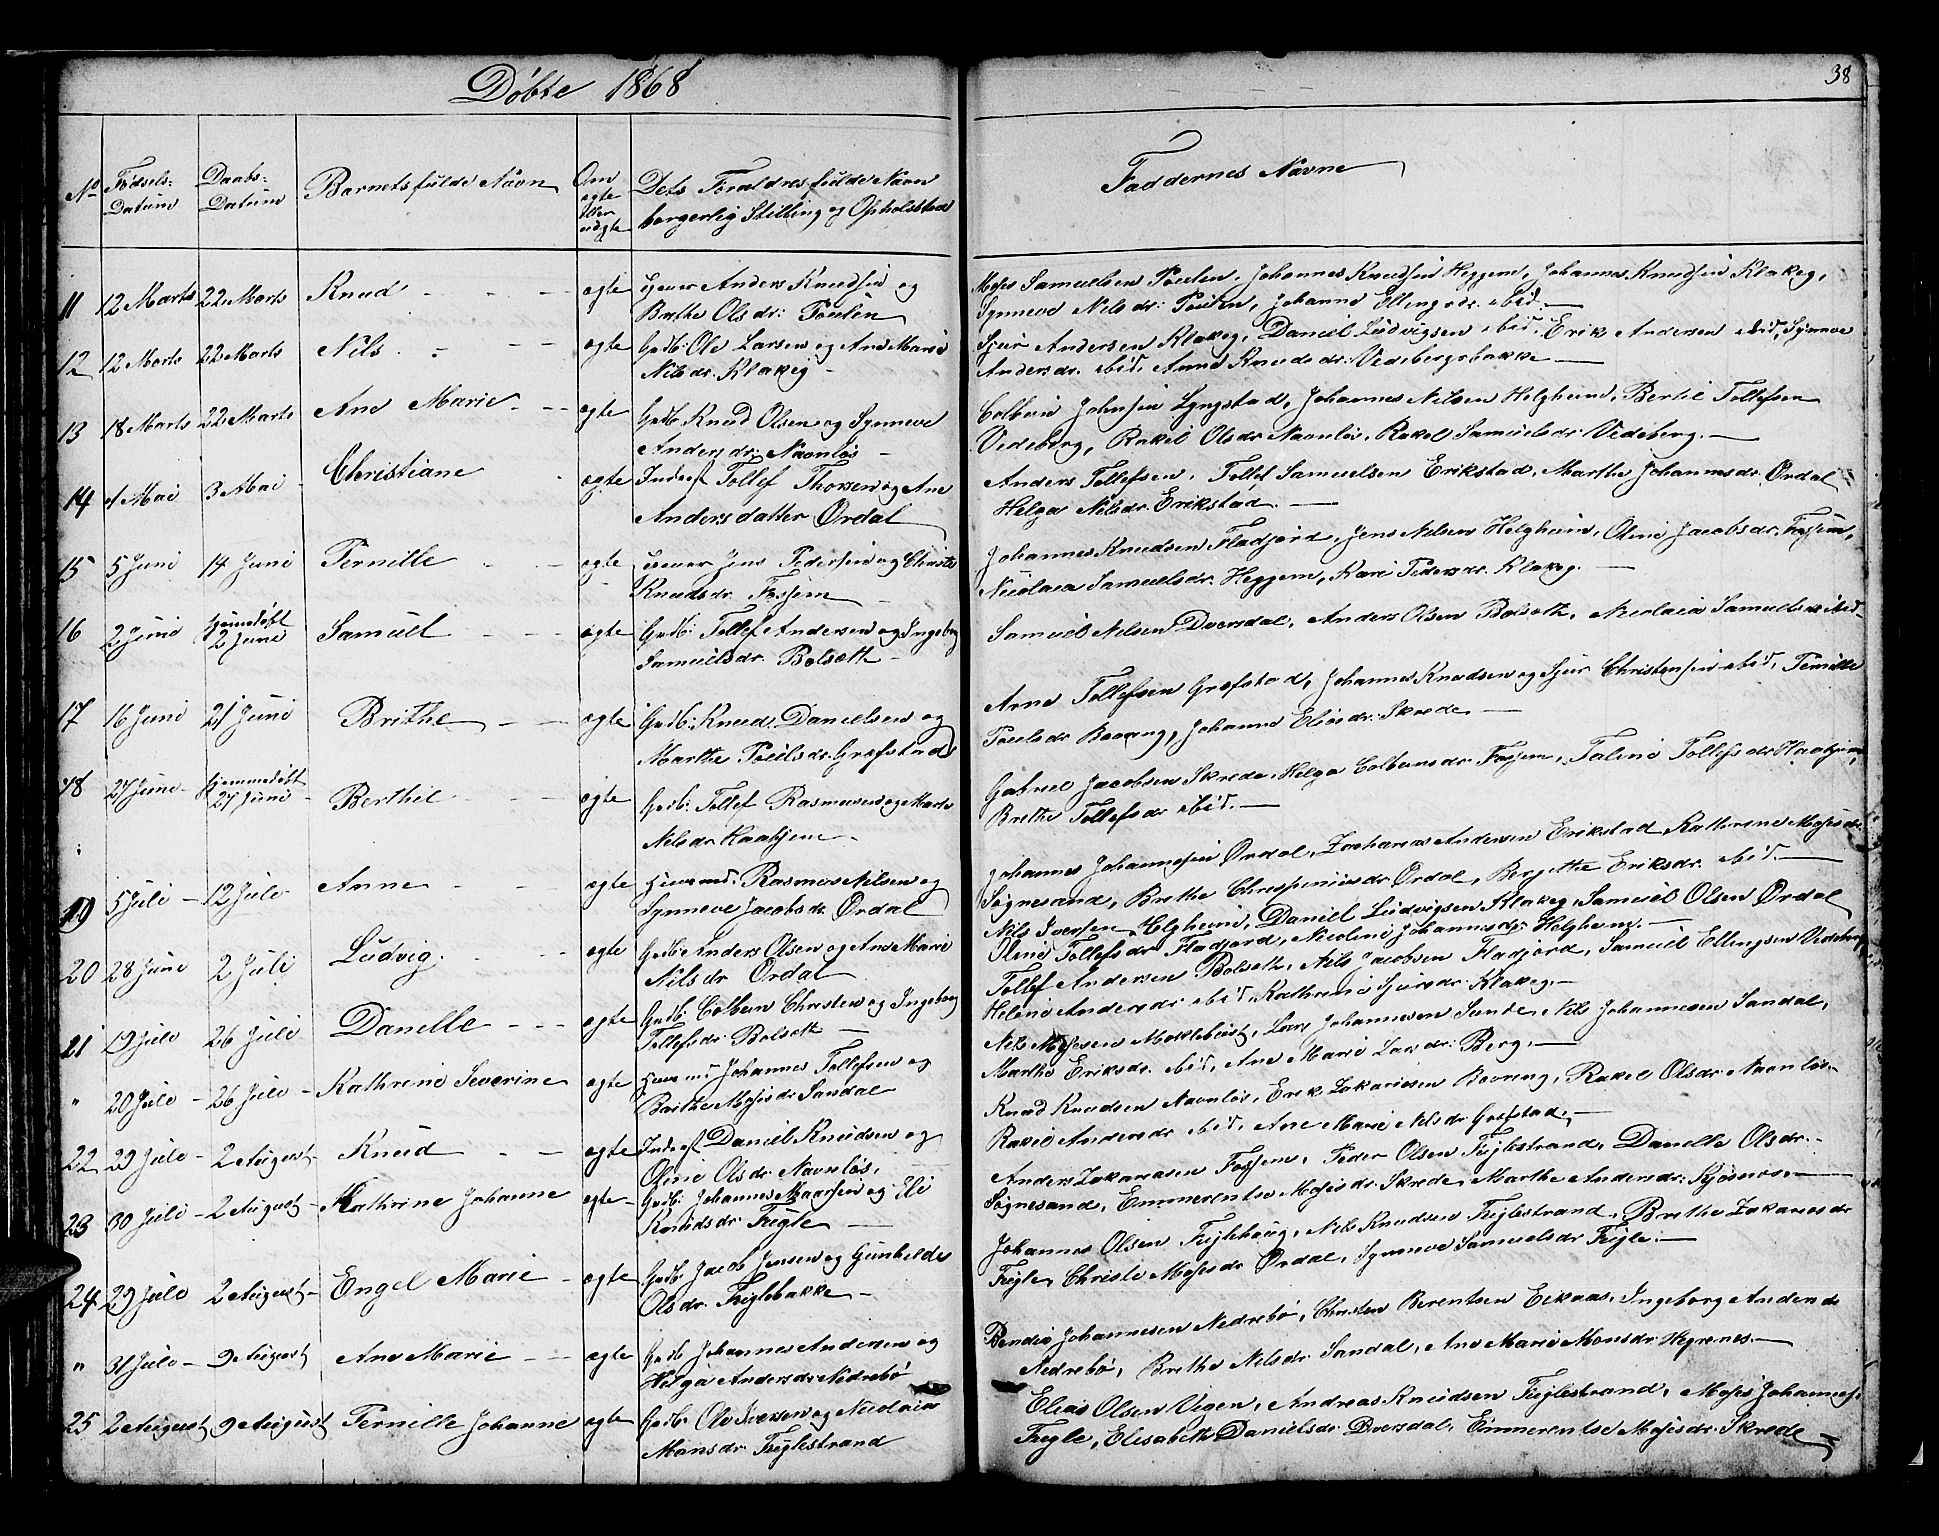 Döbte 1868
38
No
Fødsels-
Datum
Daabs-
Datum
Barnets fulde Navn
Om
ægte
eller
uægte
Dets Foraldres fulde Navn
borgerlig Stilling og Opholdsted
Faddernes Navne
11 12 Marts 22 Marts Knud - - - ægte Anders Knudsen og
Brithe Olsdr: Povlen
Moses Samuelsen Povlen, Johannes Knudsen Heggem, Johannes Knudsen Klakeg,
Synneve Nilsdr: Povlen, Johanne Ellingsdr. ibid.
12 12 Marts 22 Marts Nils - - - ægte Grdb: Ole Larsen og Ane Marie
Nilsdr. Klakeg -
Sjur Andersen Klakeg, Daniel Ludvigsen ibid, Erik Andersen ibid, Synneve
Andersdr. ibid, Anne Knudsdr. Vedebergsbakke
13 18 Marts 22 Marts Ane Marie - - ægte Grdb: Knud Olsen og Synneve
Andersdr. Navnløs -
Colbein Johnsen Lyngstad, Johannes Nilsen Helgheim, Bertil Tollefsen
Vedeberg, Rakel Olsdr. Navnløs, Rakel Samuelsdr. Vedeberg.
14 1 Mai 3 Mai Christiane - ægte Inders Tollef Thorsen og Ane
Andersdatter Ordal
Anders Tollefsen, Tollef Samuelsen Erikstad, Marthe Johannesdr. Ordal
Helga Nilsdr. Erikstad.
15 5 Juni 14 Juni Pernille - - ægte Jens Pedersen og Christe
Knudsdr. Fossem
Johannes Knudsen Fladjord, Jens Nilsen Helgheim, Oline Jacobsdr. Fossem,
Nicolaea Samuelsdr. Heggem, Kari Pedersdr. Klakeg.
16 2 Juni hjemmedøbt
2 Juni Samuel - - - ægte Grdb: Tollef Andersen og Ingeborg
Samuelsdr. Bolseth -
Samuel Nilsen Dversdal, Anders Olsen Bolseth, Nicolaia Samuelsdr ibid.
17 16 Juni 21 Juni Brithe - - ægte Grdb: Knud Danielsen og
Marthe Povelsdr. Grefstad
Arne Tollefsen Grefstad, Johannes Knudsen og Sjur Christensen ibid, Pernille
Povelsdr. Bovrng, Johanne Eliasdr. Skrede
18 27 Juni hjemmedøbt
27 Juni - Berthil - - ægte Grdb: Tollef Rasmussen og Marte
Nilsdr. Haatjem -
Gabriel Jacobsen Skrede, Helga Colbeinsdr. Fossem, Taline Tollefsdr. Haatjem,
Brethe Tollefsdr ibid.
19 5 Juli - 12 Juli Anne - - ægte Huusmd: Rasmus Nilsen og
Synneve Jacobsdr. Ordal
Johannes Johannesen Ordal, Zacharias Andersen Erikstad, Kathrine Mosesdr.
Søgnesand, Brethe Chrespinusdr. Ordal, Bergitte Eriksdr. ibid.
20 28 Juni 2 Juli Ludvig - - - ægte Grdb: Anders Olsen og Ane Marie
Nilsdr. Ordal
Nils Iversen Helgheim, Daniel Ludvigsen Klakeg, Samuel Olsen Ordal
Oline Tollefsdr. Fladjord, Nicoline Johannesdr. Helgheim.
21 19 Juli 26 Juli Danelle - - - ægte Grdb: Colbein Christen og Ingeborg
Tollefsdr. Bolseth
Tollef Andersen Bolseth, Nils Jacobsen Fladjord, Samuel Ellingsen Vedeberg
Heline Andersdr ibid, Kathrine Sjursdr. Klakeg.
" 20 Juli - 26 Juli - Kathrine Severine ægte Huusmd Johannes Tollefsen og
Brithe Mosesdr. Sandal
Nils Mosesen Moklebust, Lars Johannesen Sunde, Nils Johannesen Sandal,
Marthe Eriksdr. ibid, Ane Marie Larsdr: Berg.
22 29 Juli - 2 August - Knud - - ægte Inders Daniel Knudsen og
Oline Olsdr. Navnløs.
Knud Knudsen Navnløs, Erik Zakariesen Bovrng, Rakel Olsdr. Navnløs
Rakel Andersdr ibid, Ane Marie Nilsdr. Grefstad.
23 30 Juli - 2 August - Kathrine Johanne ægte - Grdb: Johannes Maarsen og Eli
Knudsdr. Fugle
Anders Zakariasen Fossem, Peder Olsen Fuglestrand, Danelle Olsdr.
Søgnesand, Emmerentse Mosesdr. Skrede, Marthe Andersdr. Kjøsnes.
24 29 Juli 2 August - Engel Marie - ægte Grdb: Jacob Jensen og Gunhilde
Olsdr. Fuglebakke -
Johannes Olsen Fuglehaug, Nils Knudsen Fuglestrand, Brethe Zakariasdr
Fugle, Christe Mosesdr Ordal, Synneve Samuelsdr. Fugle.
" 31 Juli - 9 August Ane Marie - - ægte Grdb. Johannes Andersen og
Helga Andersdr. Nedrebø
Bendix Johannesen Nedrebø, Christen Berentsen Eikaas, Ingeborg Andersdr
Nedrebø, Brethe Nilsdr. Sandal, Ane Marie Monsdr. Hegrenes.
25 2 August 9 August Pernille Johanne ægte Grdb: Ole Iversen og Nicolaia
Monsdr. Fuglestrand
Elias Olsen Vigen, Andreas Knudsen Fuglestrand, Moses Johannes.
Fugle, Elisabeth Danielsdr. Dversdal, Emmerentse Mosesdr. Skrede